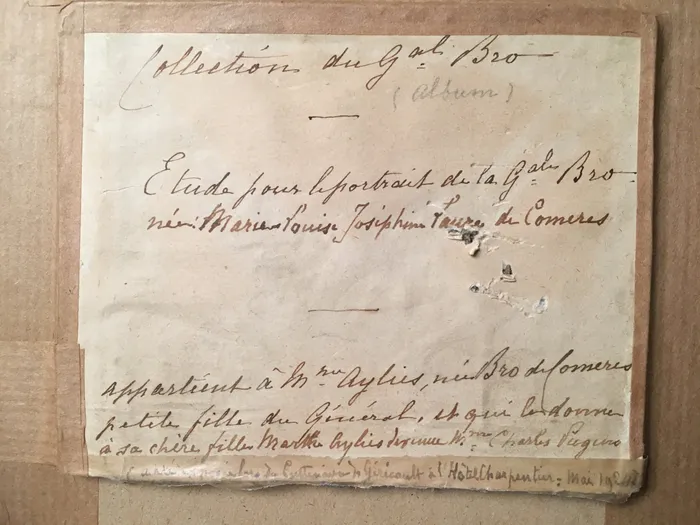 Collection du Gal Bro
(album)
Etude pour le portrait de la Gale Bro
née Marie Louise Joséphine Laure de Comeres
appartient à Mme Aylies, née Bro de Comeres
petite fille du Général, et qui le donne
à sa chère fille Marthe Aylies devenue Mme Charles
du Centenaire de Géricault à l'Hôtel Charpentier - Mai 1924